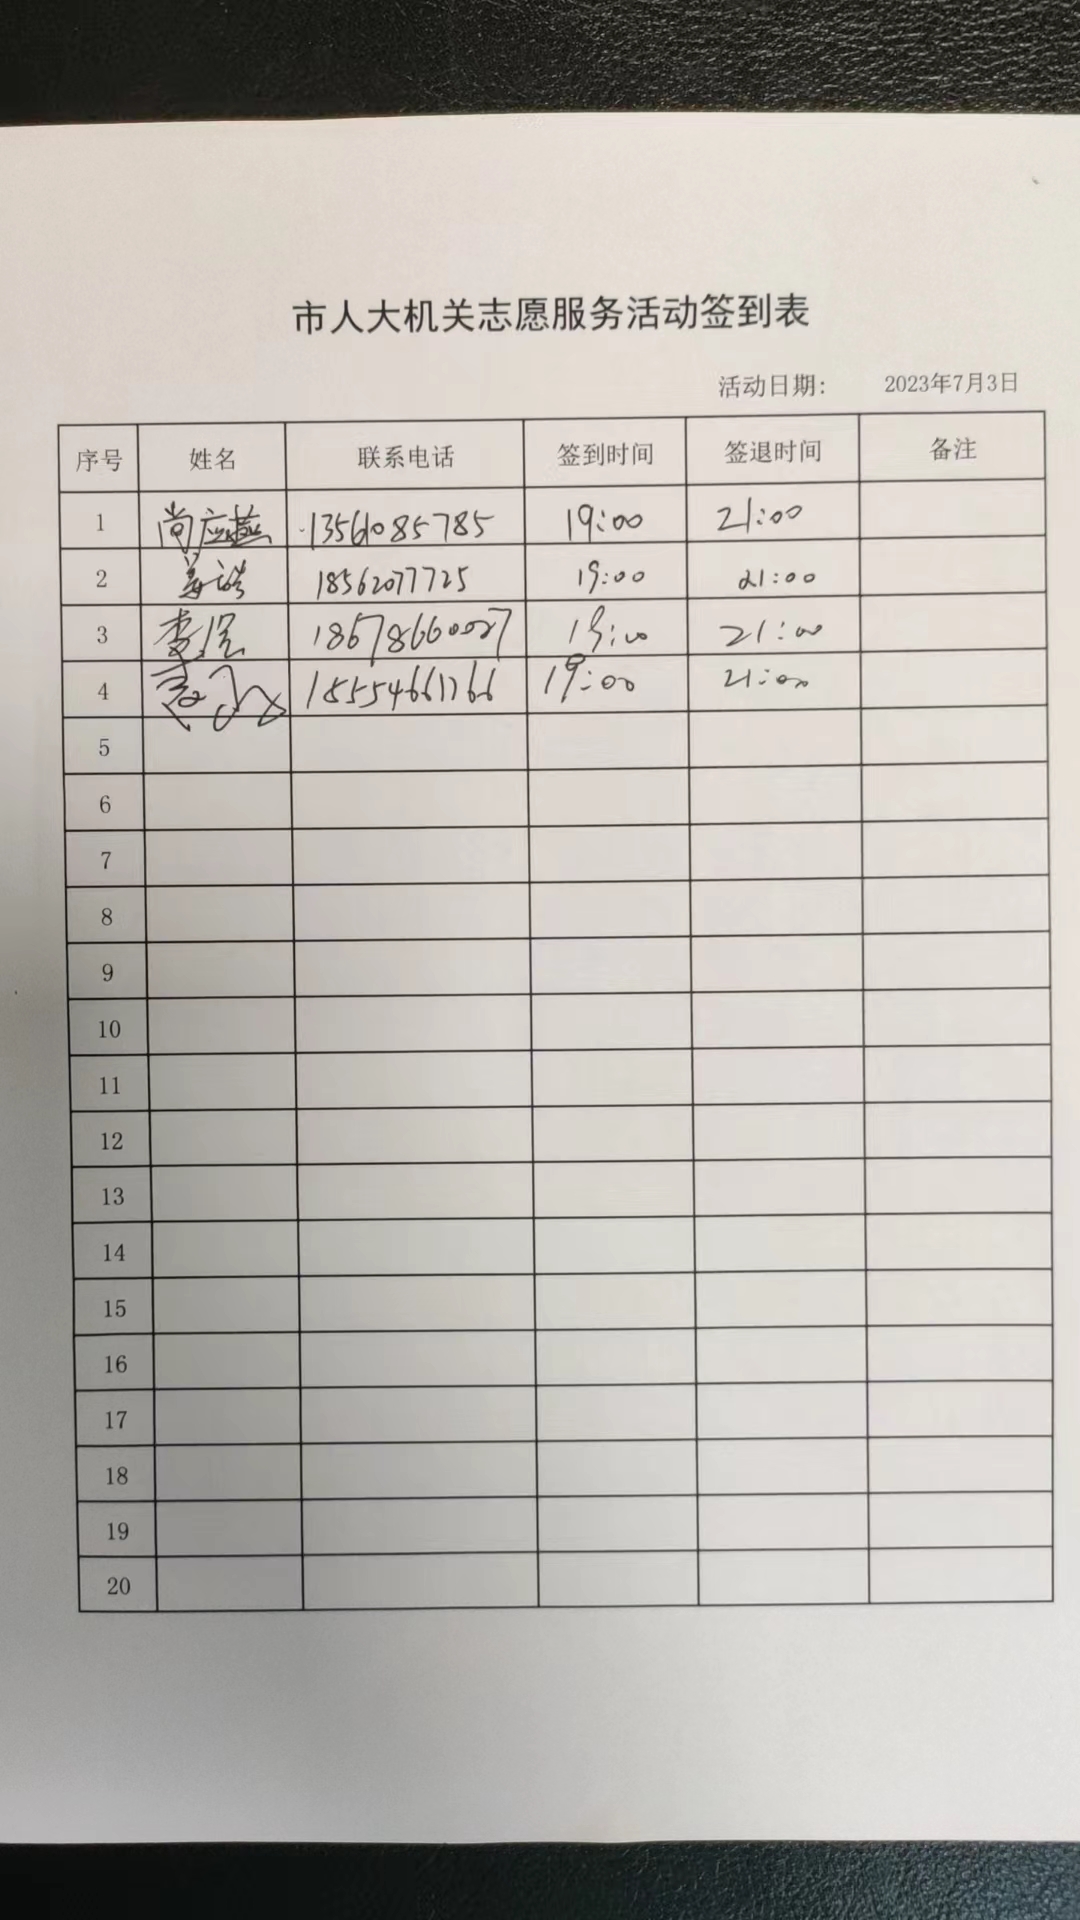 市人大机关志愿服务活动签到表
活动日期: 2023年7月3日
序号 姓名 联系电话 签到时间 签退时间 备注
1 尚应燕 13561085785 19:00 21:00
2 姜皓 18562077725 19:00 21:00
3 李 18678660027 19:00 21:00
4 19:00 21:00
5
6
7
8
9
10
11
12
13
14
15
16
17
18
19
20